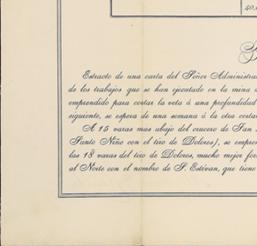 Extracto de una carta del Señor Administra
de los trabajos que se han ejecutado en la mina
emprendido para cortar la veta á una profundidad
siguiente, se espera de una semana á la otra corta
A 15 varas mas abajo del crucero de San
Santo Niño con el tiro de Dolores), se empre
las 18 varas del tiro de Dolores, mucho mejor for
al Norte con el nombre de S. Estévan, que tiene